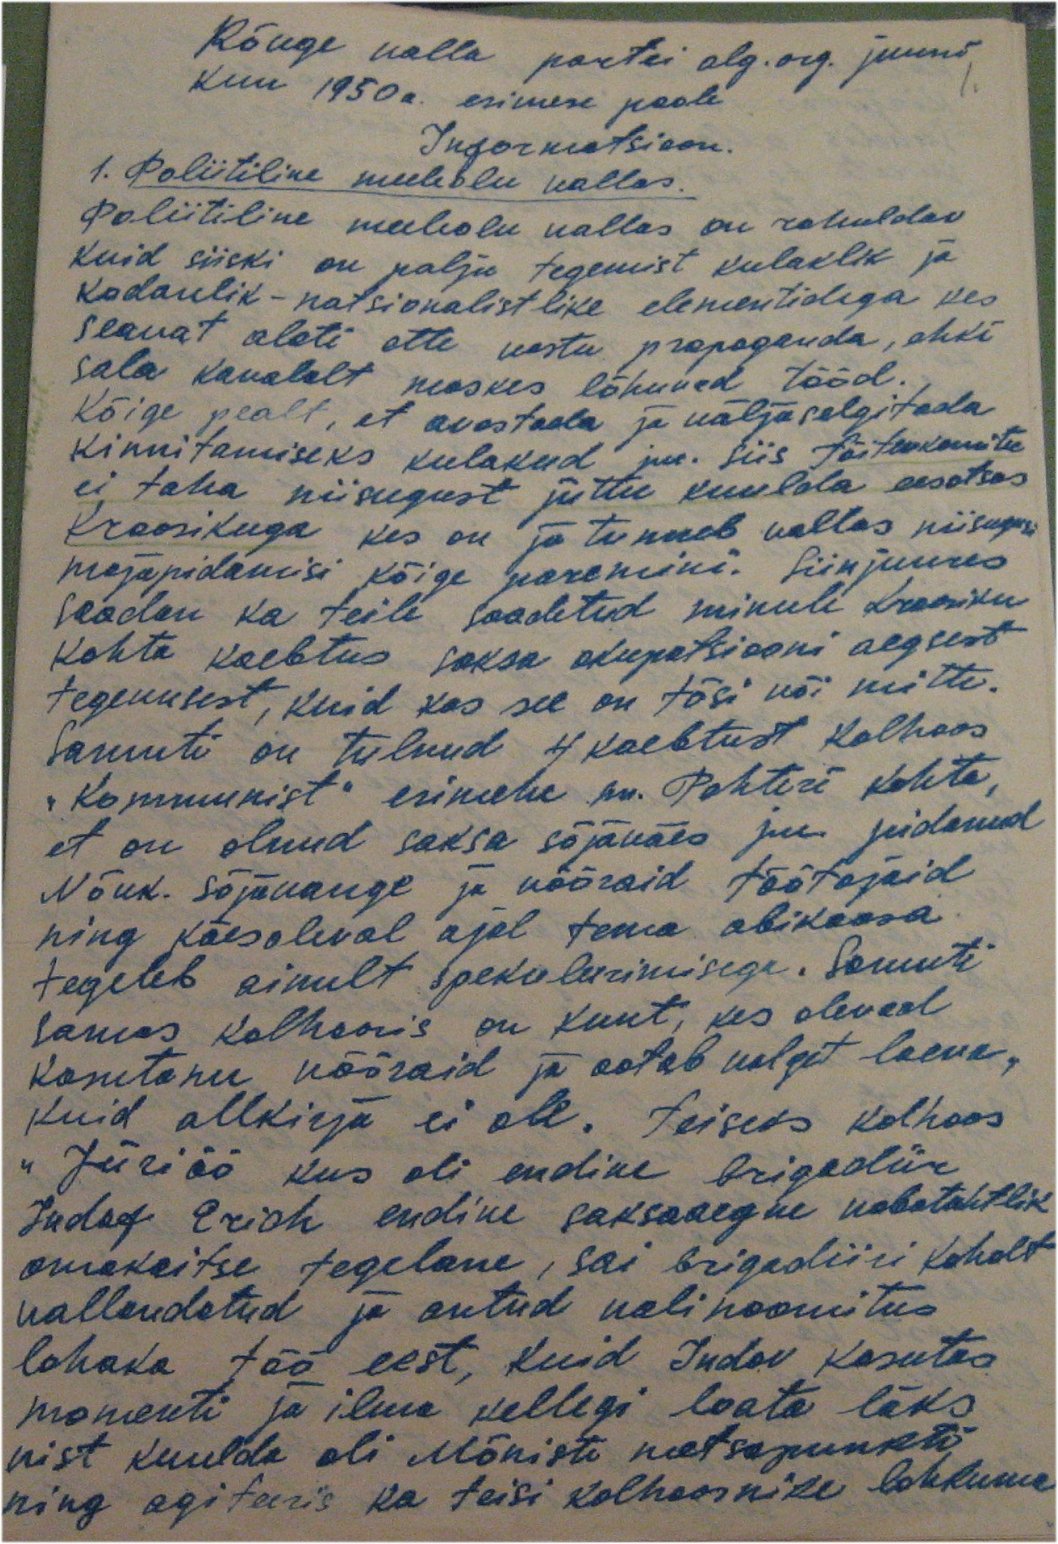 Rõuge valla partei alg. org. juuni
1.
kuu 1950 a. esimese poole
Informatsioon.
1. Poliitiline meeleolu vallas.
Poliitiline meeleolu vallas on rahuldav
kuid siiski on palju tegemist kulaklik ja
kodanlik-natsionalistlike elementidega kes
seavat alati ette vastu propaganda, ehki
sala kavalalt maskes lõhuvad tööd.
Kõige pealt, et avastada ja väljaselgitada
kinnitamiseks kulakud jne. siis Täitevkomitee
ei taha niisugust juttu kuulda eesotsas
Kroosikuga kes on ja tunneb vallas niisugusi
majapidamisi kõige paremini. Siinjuures
saadan ka teile saadetud minule Kroosiku
kohta kaebtus saksa okupatsiooni aegsest
tegevusest, kuid kas see on tõsi või mitte.
Samuti on tulnud 4 kaebtust kolhoos
"Kommunist" esimehe sm. Pohteri kohta,
et on olnud saksa sõjaväes jne. pidanud
Nõuk. sõjavange ja võõraid töötajaid
ning käesoleval ajal tema abikaasa
tegeleb ainult spekuleerimisega. Samuti
samas kolhoosis on Kunt, kes olevad
kasutanu võõraid ja ootab valget laeva,
kuid allkirja ei ole. Teiseks kolhoos
"Jüriöö kus oli endine brigadiir
Indov Erich endine saksaaegne vabatahtlik
omakaitse tegelane, sai brigadiiri kohalt
vallandatud ja antud vali noomitus
lohaka töö eest, kuid Indov kasutas
momenti ja ilma kellegi loata läks
vist kuulda oli Mõniste metsapunkti
ning agiteeris ka teisi kolhoosnike lahkuma